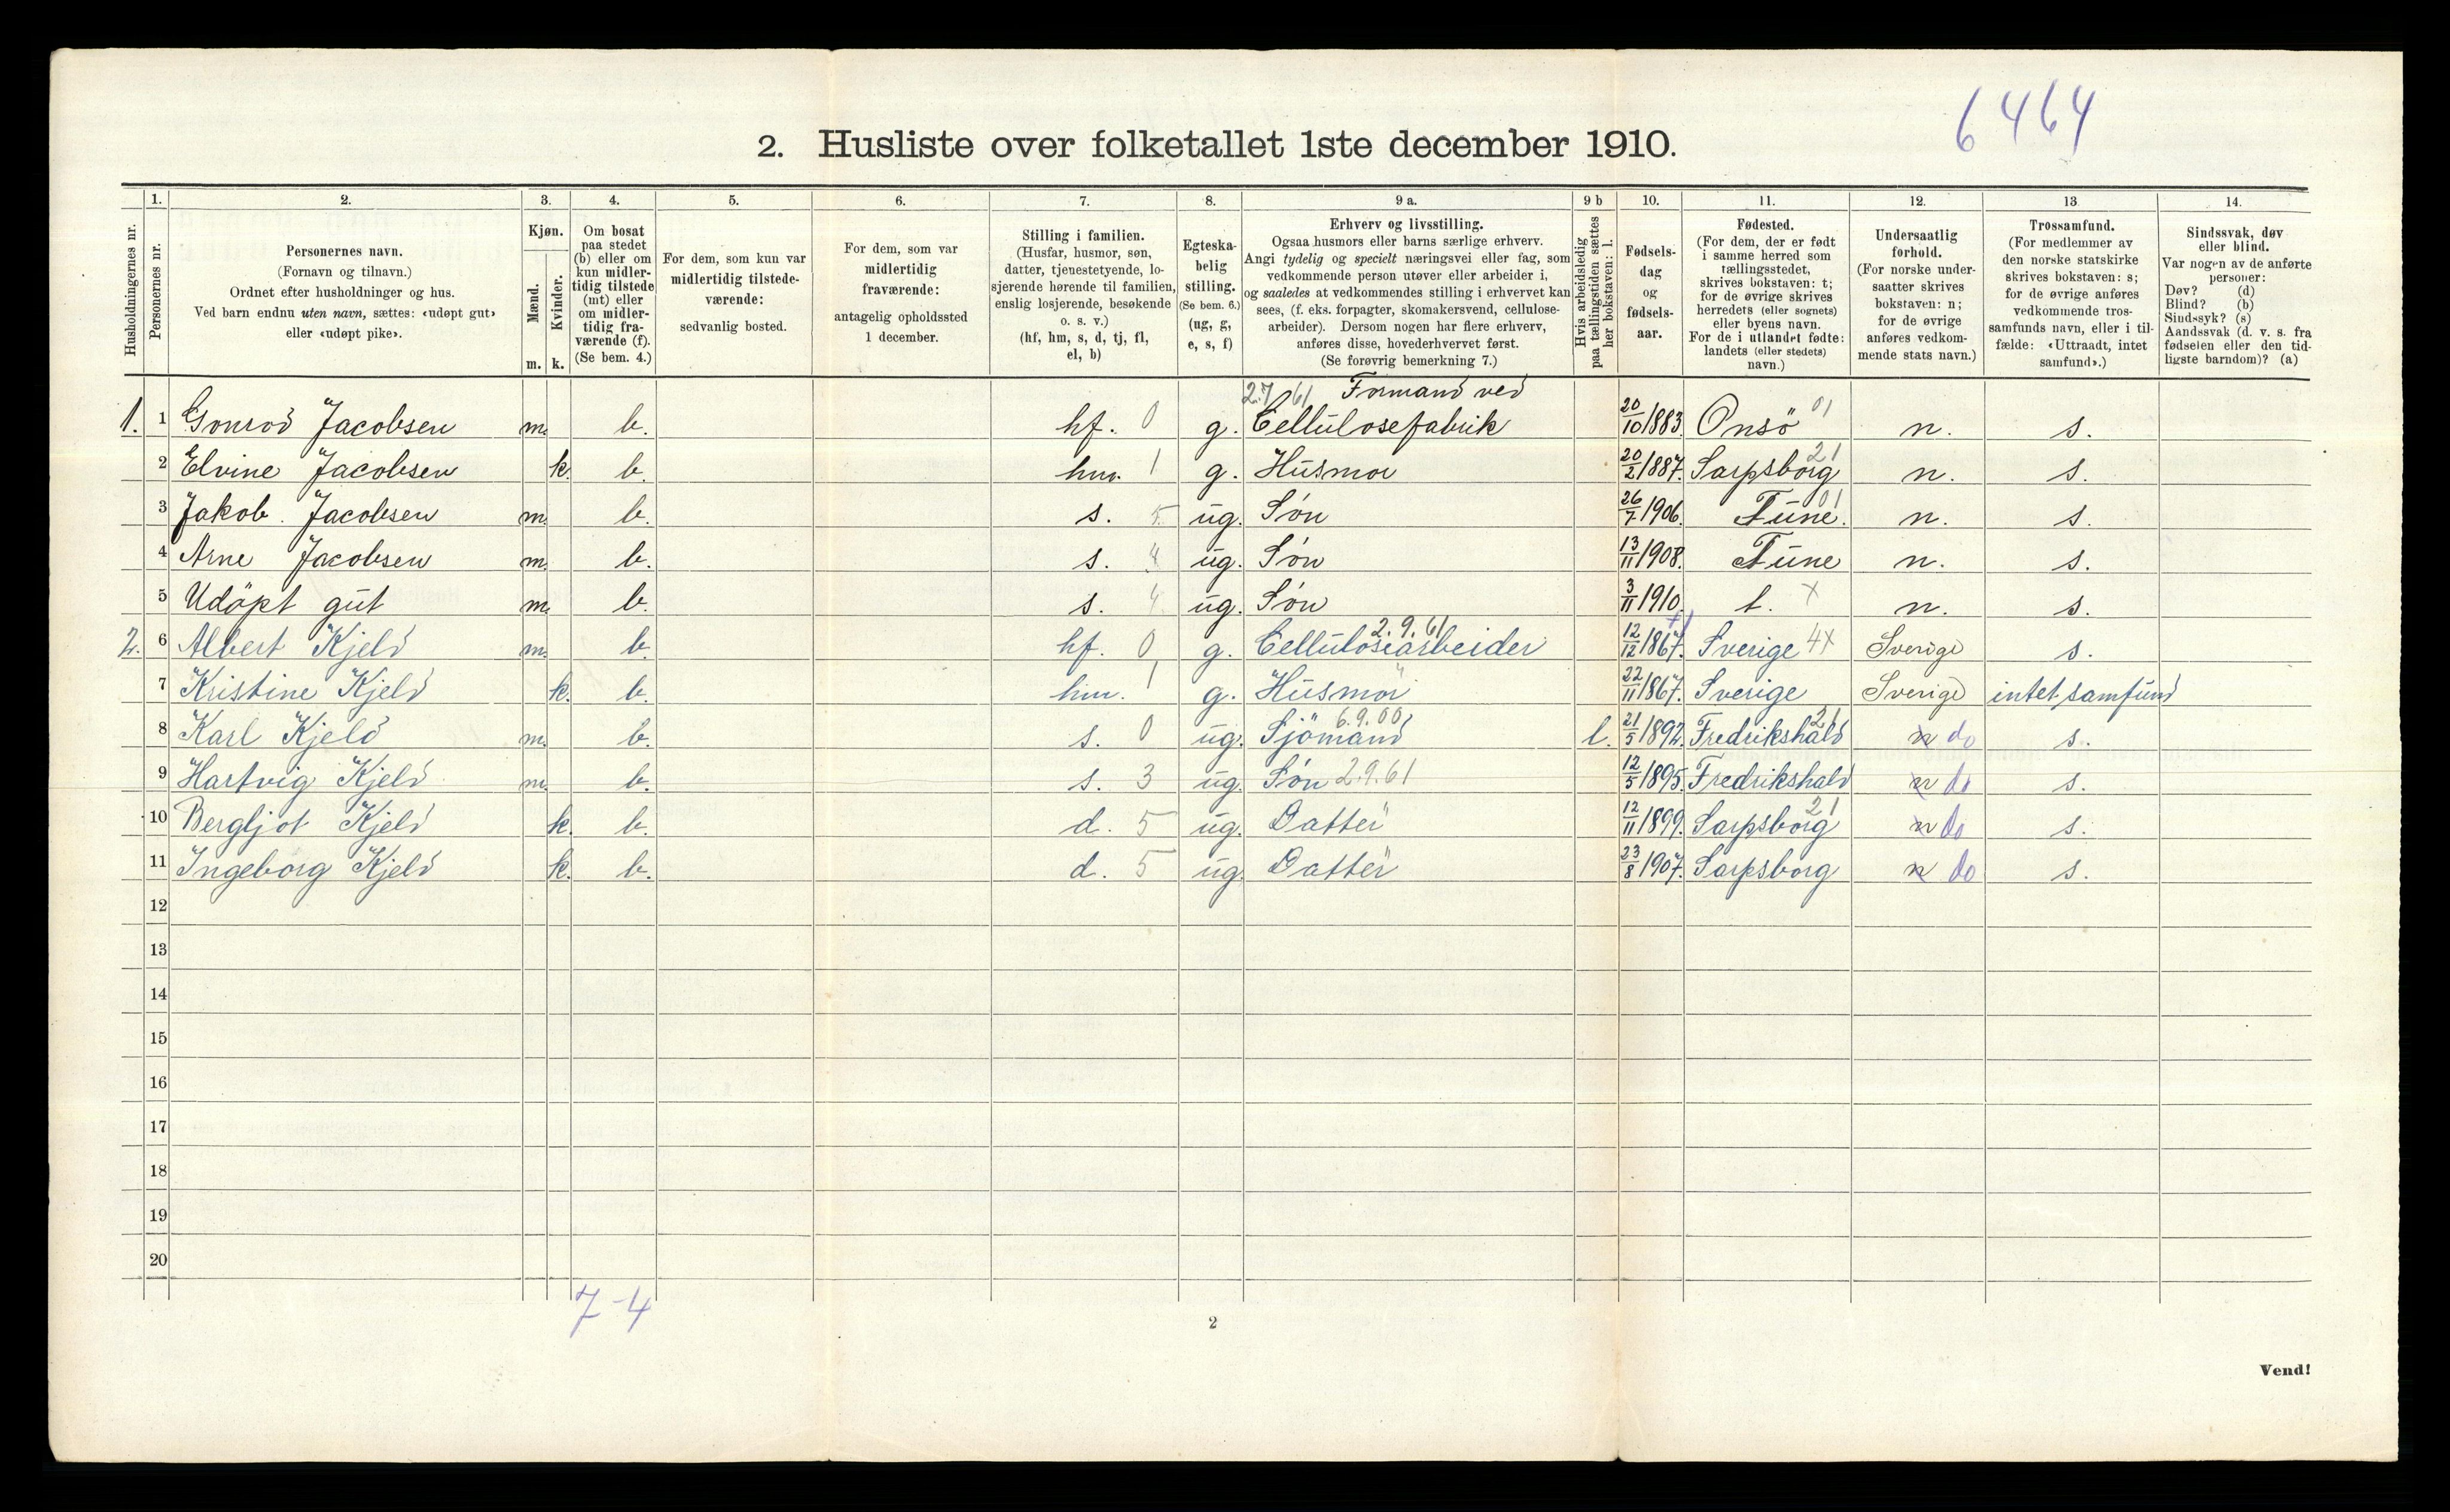 6464
2. Husliste over folketallet 1ste december 1910.
Husholdningernes nr.
1.
Personernes nr.
2.
Personernes navn.
(Fornavn og tilnavn.)
Ordnet efter husholdninger og hus.
Ved barn endnu uten navn, sættes: «udøpt gut»
eller «udøpt pike».
3.
Kjøn.
Mænd.
m.
Kvinder.
k.
4.
Om bosat
paa stedet
(b) eller om
kun midler-
tidig tilstede
(mt) eller
om midler-
tidig fra-
værende (f).
(Se bem. 4.)
5.
For dem, som kun var
midlertidig tilstede-
værende:
sedvanlig bosted.
6.
For dem, som var
midlertidig
fraværende:
antagelig opholdssted
1 december.
7.
Stilling i familien.
(Husfar, husmor, søn,
datter, tjenestetyende, lo-
sjerende hørende til familien,
enslig losjerende, besøkende
o. s. v.)
(hf, hm, s, d, tj, fl,
el, b)
8.
Egteska-
belig
stilling.
(Se bem. 6.)
(ug, g,
e, s, f)
9 a.
Erhverv og livsstilling.
Ogsaa husmors eller barns særlige erhverv.
Angi tydelig og specielt næringsvei eller fag, som
vedkommende person utøver eller arbeider i,
og saaledes at vedkommendes stilling i erhvervet kan
sees, (f. eks. forpagter, skomakersvend, cellulose-
arbeider). Dersom nogen har flere erhverv,
anføres disse, hovederhvervet først.
(Se forøvrig bemerkning 7.)
9 b
Hvis arbeidsledig
paa tællingstiden sættes
her bokstaven: l.
10.
Fødsels-
dag
og
fødsels-
aar.
11.
Fødested.
(For dem, der er født
i samme herred som
tællingsstedet,
skrives bokstaven: t;
for de øvrige skrives
herredets (eller sognets)
eller byens navn.
For de i utlandet fødte:
landets (eller stedets)
navn.)
12.
Undersaatlig
forhold.
(For norske under-
saatter skrives
bokstaven: n;
for de øvrige
anføres vedkom-
mende stats navn.)
13.
Trossamfund.
(For medlemmer av
den norske statskirke
skrives bokstaven: s;
for de øvrige anføres
vedkommende tros-
samfunds navn, eller i til-
fælde: «Uttraadt, intet
samfund».)
14.
Sindssvak, døv
eller blind.
Var nogen av de anførte
personer:
Døv? (d)
Blind? (b)
Sindssyk? (s)
Aandssvak (d. v. s. fra
fødselen eller den tid-
ligste barndom)? (a)
27 61 Formand ved
1. 1 Gonrod Jacobsen m. b. hf. 0 g. Cellulosefabrik 20/10 1883. Onsö 01 n. s.
2 Elvine Jacobsen k. b. hm. 1 g. Husmor 20/2 1887. Sarpsborg 21 n. s.
3 Jakob. Jacobsen m. b. s. 5 ug. Søn 26/7 1906. Tune. 01 n. s.
4 Arne Jacobsen m. b. s. 4 ug. Søn 13/11 1908. Tune n. s.
5 Udöpt gut m. b. s. 4. ug. Søn 3/11 1910. t. x n. s.
2.9.61
2. 6 Albert Kjeld m. b. hf. 0 g. Cellulosearbeider 12/12 1867. Sverige 4x Sverige s.
7 Kristine Kjeld k. b. hm. 1 g. Husmor 22/11 1867. Sverige Sverige intet samfund
6.9.00
8 Karl Kjeld m. b. s. 0 ug. Sjömand l. 21/5 1892. Fredrikshald 21 n do s.
9 Hartvig Kjeld m. b. s. 3 ug. Søn 2.9.61 12/5 1895. Fredrikshald n do s.
10 Bergljot Kjeld k. b. d. 5 ug. Datter 12/11 1899. Sarpsborg 21 n do s.
11 Ingeborg Kjeld k. b. d. 5 ug. Datter 23/8 1907. Sarpsborg n do s.
12
13
14
15
16
17
18
19
20
7-4
2
Vend!